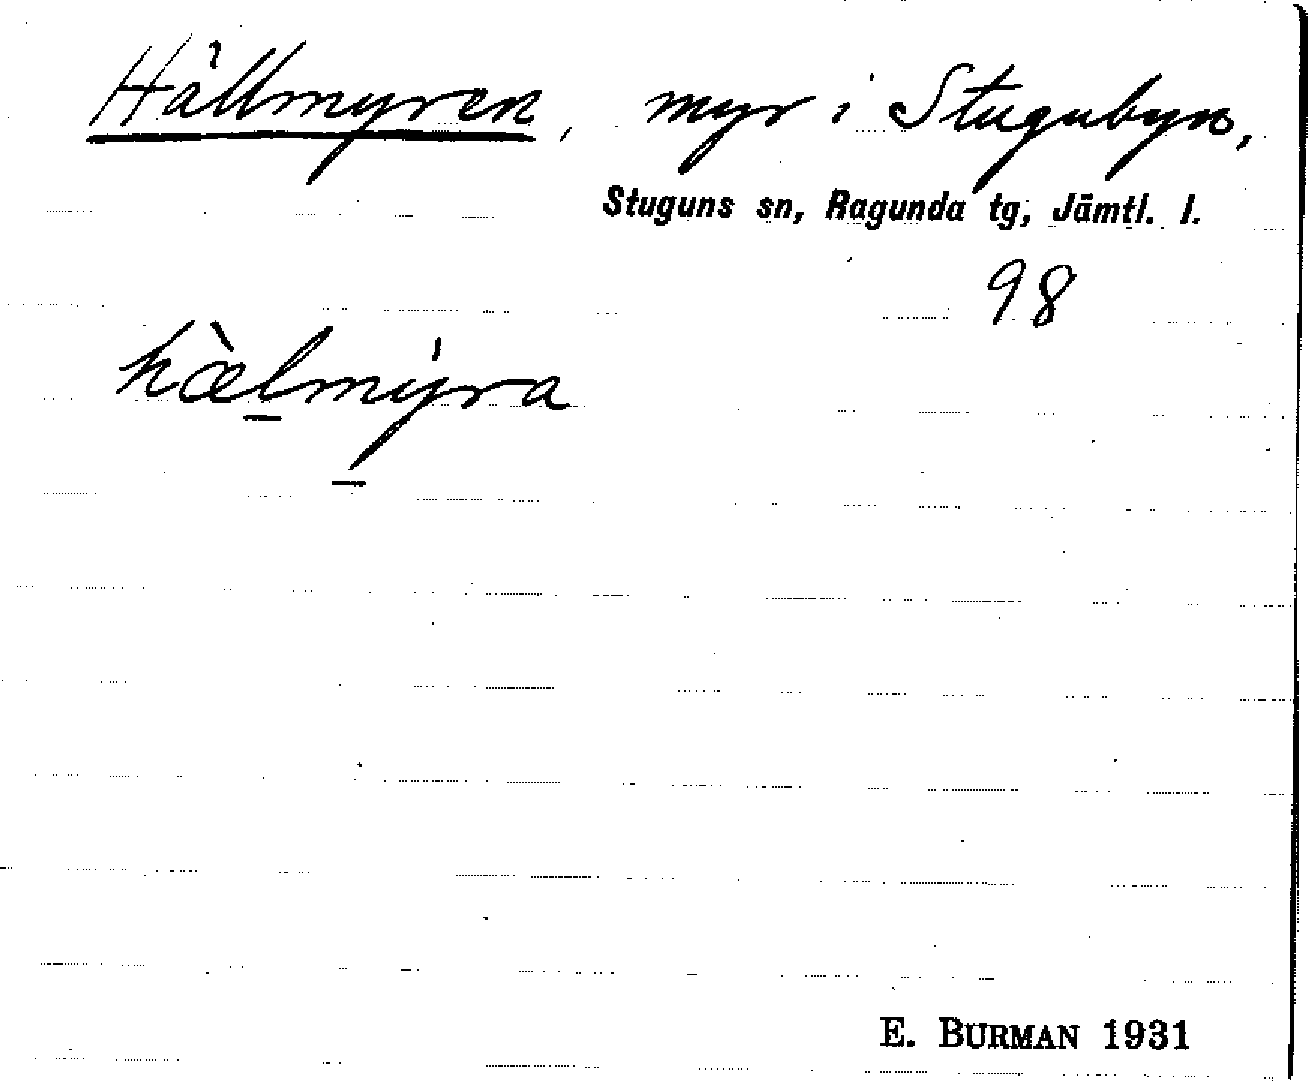 Hällmyren, myr i Stugubyn,
Stuguns sn, Ragunda tg, Jämtl. l.
98
hæ̀lmýra
E. BURMAN 1931